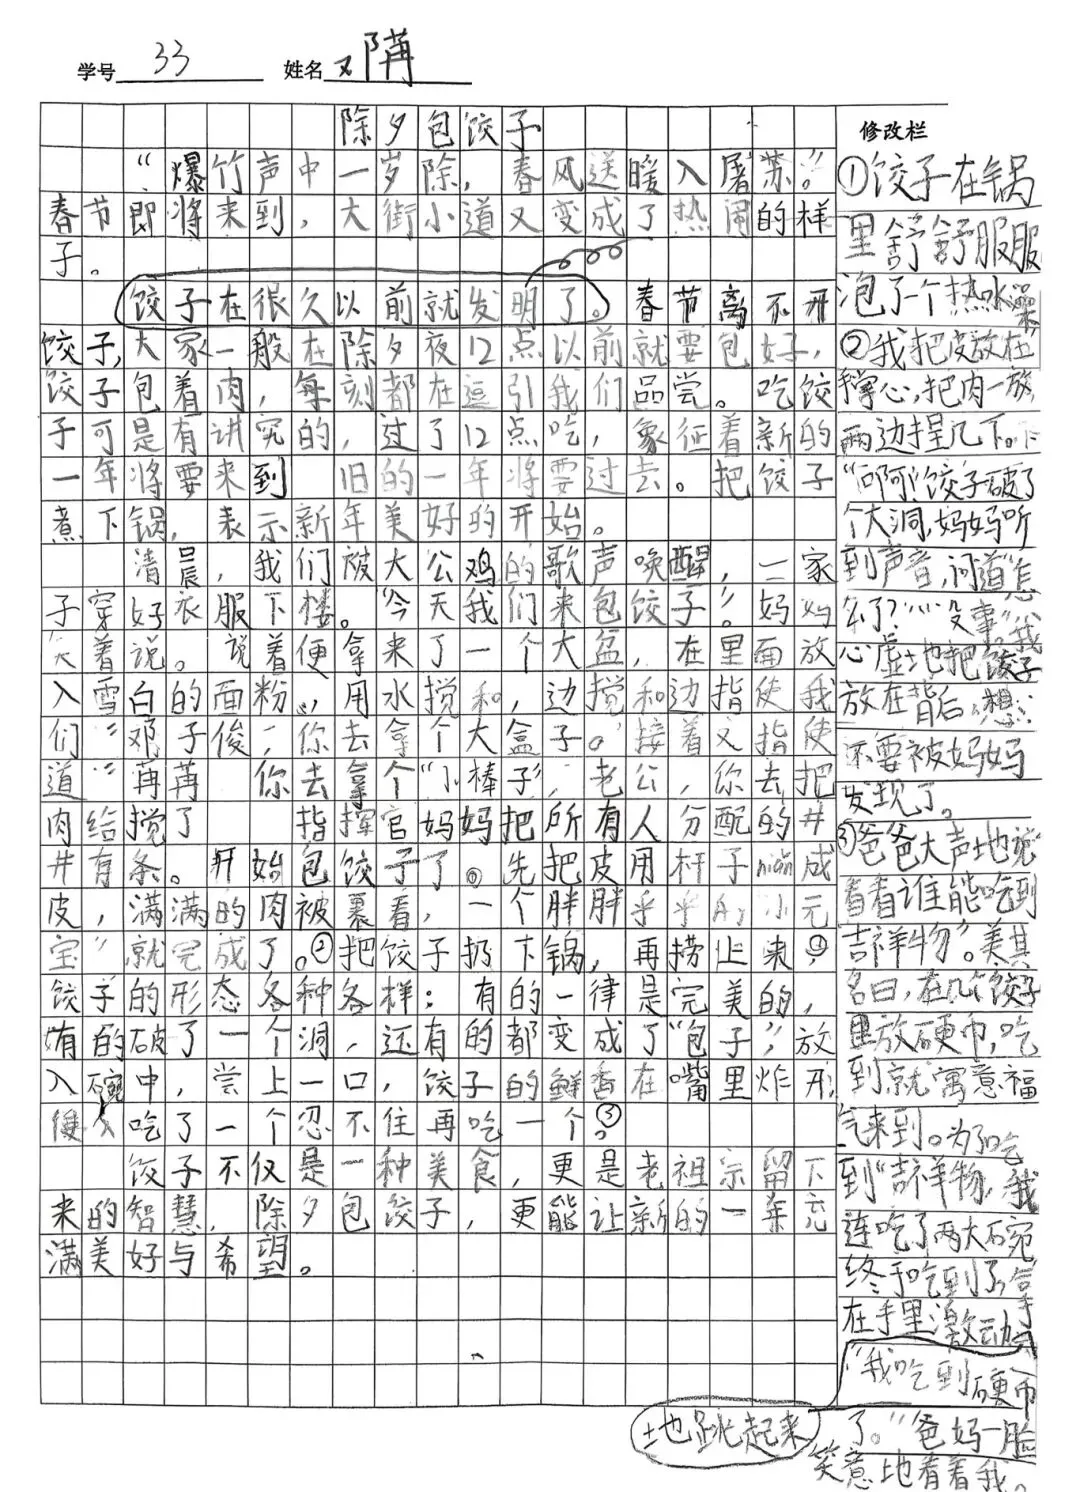 学号 33 姓名 邓苒
除夕包饺子
“爆竹声中一岁除，春风送暖入屠苏。”
春节即将来到，大街小道又变成了热闹的样
子。
饺子在很久以前就发明了。春节离不开
饺子，大家一般在除夕夜12点以前就要包好，
饺子包着肉，每刻都在逗引我们品尝。吃饺
子可是有讲究的，过了12点吃，象征着新的
一年将要来到 旧的一年将要过去。把饺子
煮下锅，表示新年美好的开始。
清晨，我们被大公鸡的歌声唤醒，一家
子穿好衣服下楼。“今天我们来包饺子”。妈妈
笑着说。说着便拿来了一个大盆，在里面放
入雪白的面粉，用水搅和，边搅和边指使我
们：“邓子俊，你去拿个大盒子。”接着又指使
道：“苒苒 你去拿个“小棒子”，老公，你去把
肉给搅了 指挥官妈妈把所有人分配的井
井有条。开始包饺子了。先把皮用杆子 成
皮，满满的肉被裹着，一个胖胖乎乎的“小元
宝”就完成了。②把饺子扔下锅，再捞上来，①
饺子的形态各种各样：有的一律是完美的，
有的破了一个洞，还有的都变成了“包子”，放
入碗中，尝上一口，饺子的鲜香在嘴里炸开，
便 吃了一个忍不住再吃一个。③
饺子不仅是一种美食，更是老祖宗留下
来的智慧，除夕包饺子，更能让新的一年充
满美好与希望。
修改栏
①饺子在锅
里舒舒服服
泡了一个热水澡
②我把皮放在
掌心，把肉一放，
两边捏几下。
“啊啊！”饺子破了
个大洞，妈妈听
到声音，问道“怎
么了？”“没事。”我
心虚地把饺子
放在背后，想：
不要被妈妈
发现了。
③爸爸大声地说
看看谁能吃到
“吉祥物”。美其
名曰，在几个饺子
里放硬币，吃
到就寓意福
气来到。为了吃
到“吉祥物”，我
连吃了两大碗
终于吃到了，拿
在手里激动
地跳起来
“我吃到硬币
了。”爸妈一脸
笑意地看着我。